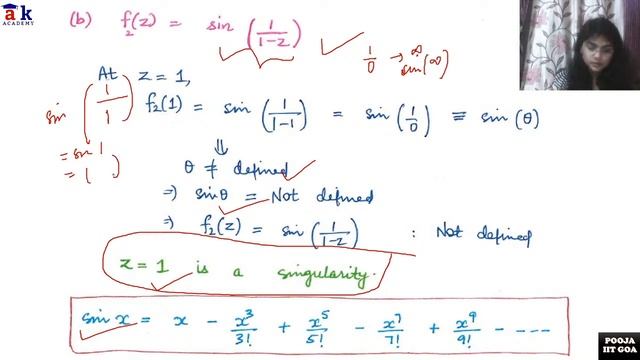 ak
ACADEMY
(b) f₂(z) = sin (1/(1-z))
1/0 → ∞
sin(∞)
At z = 1,
sin (1/1)
= sin 1
= 1
f₂(1) = sin (1/(1-1)) = sin (1/0) ≡ sin (θ)
⇓
θ ≠ defined
⇒ sinθ = Not defined
⇒ f₂(z) = sin (1/(1-z)) : Not defined
z = 1 is a singularity.
sin x = x - x³/3! + x⁵/5! - x⁷/7! + x⁹/9! - ----
POOJA
IIT GOA